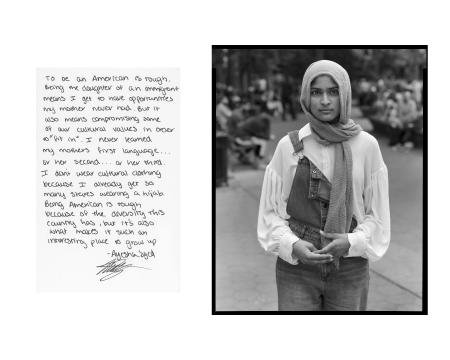 To be an American is rough.
Being the daughter of an immigrant
means I get to have opportunities
my mother never had. But it
also means compromising some
of our cultural values in order
to "fit in". I never learned
my mothers first language...
or her second... or her third.
I dont wear cultural clothing
because I already get so
many stares wearing a hijab.
Being American is rough
because of the diversity this
country has, but it's also
what makes it such an
interesting place to grow up
-Ayesha